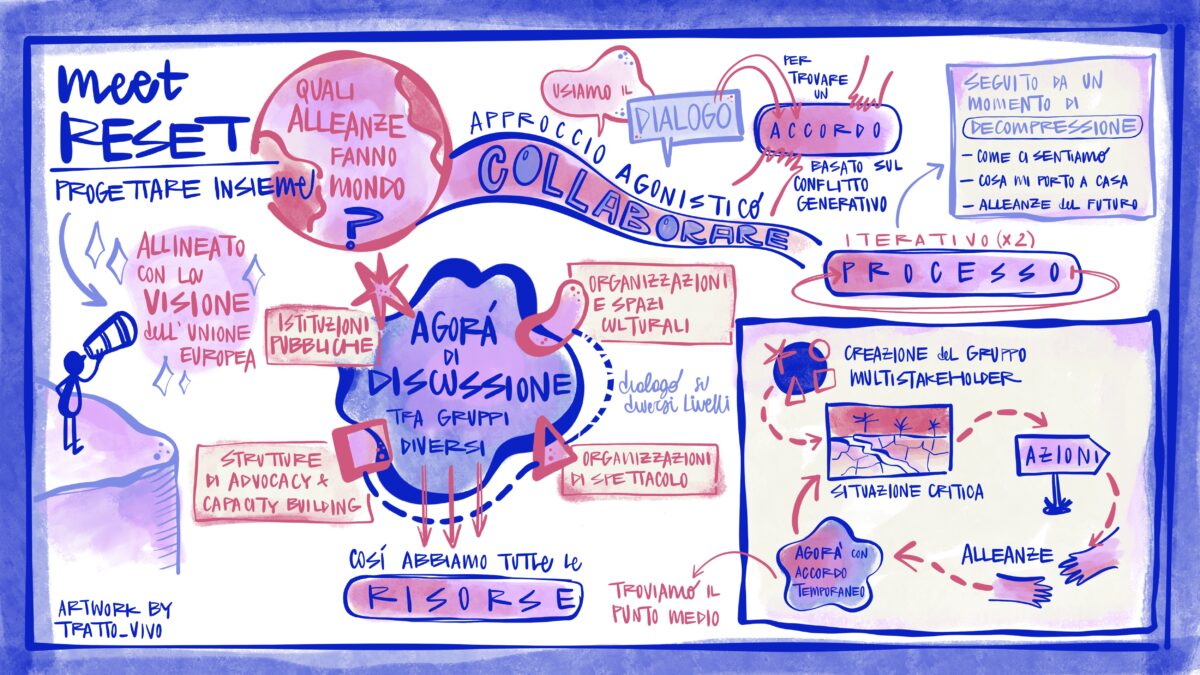 meet
RESET
PROGETTARE INSIEME
QUALI
ALLEANZE
FANNO
MONDO
?
ALLINEATO
CON LA
VISIONE
dell'UNIONE
EUROPEA
APPROCCIO AGONISTICO
COLLABORARE
USIAMO IL
DIALOGO
PER
TROVARE
UN
ACCORDO
BASATO SUL
CONFLITTO
GENERATIVO
SEGUITO DA UN
MOMENTO DI
DECOMPRESSIONE
- COME CI SENTIAMO
- COSA MI PORTO A CASA
- ALLEANZE del FUTURO
ITERATIVO (x2)
PROCESSO
AGORÁ
DI
DISCUSSIONE
TRA GRUPPI
DIVERSI
ISTITUZIONI
PUBBLICHE
ORGANIZZAZIONI
E SPAZI
CULTURALI
dialogo su
diversi livelli
STRUTTURE
DI ADVOCACY &
CAPACITY BUILDING
ORGANIZZAZIONI
DI SPETTACOLO
COSÍ ABBIAMO TUTTE LE
RISORSE
CREAZIONE del GRUPPO
MULTISTAKEHOLDER
SITUAZIONE CRITICA
AZIONI
ALLEANZE
AGORA' CON
ACCORDO
TEMPORANEO
TROVIAMO IL
PUNTO MEDIO
ARTWORK BY
TRATTO_VIVO